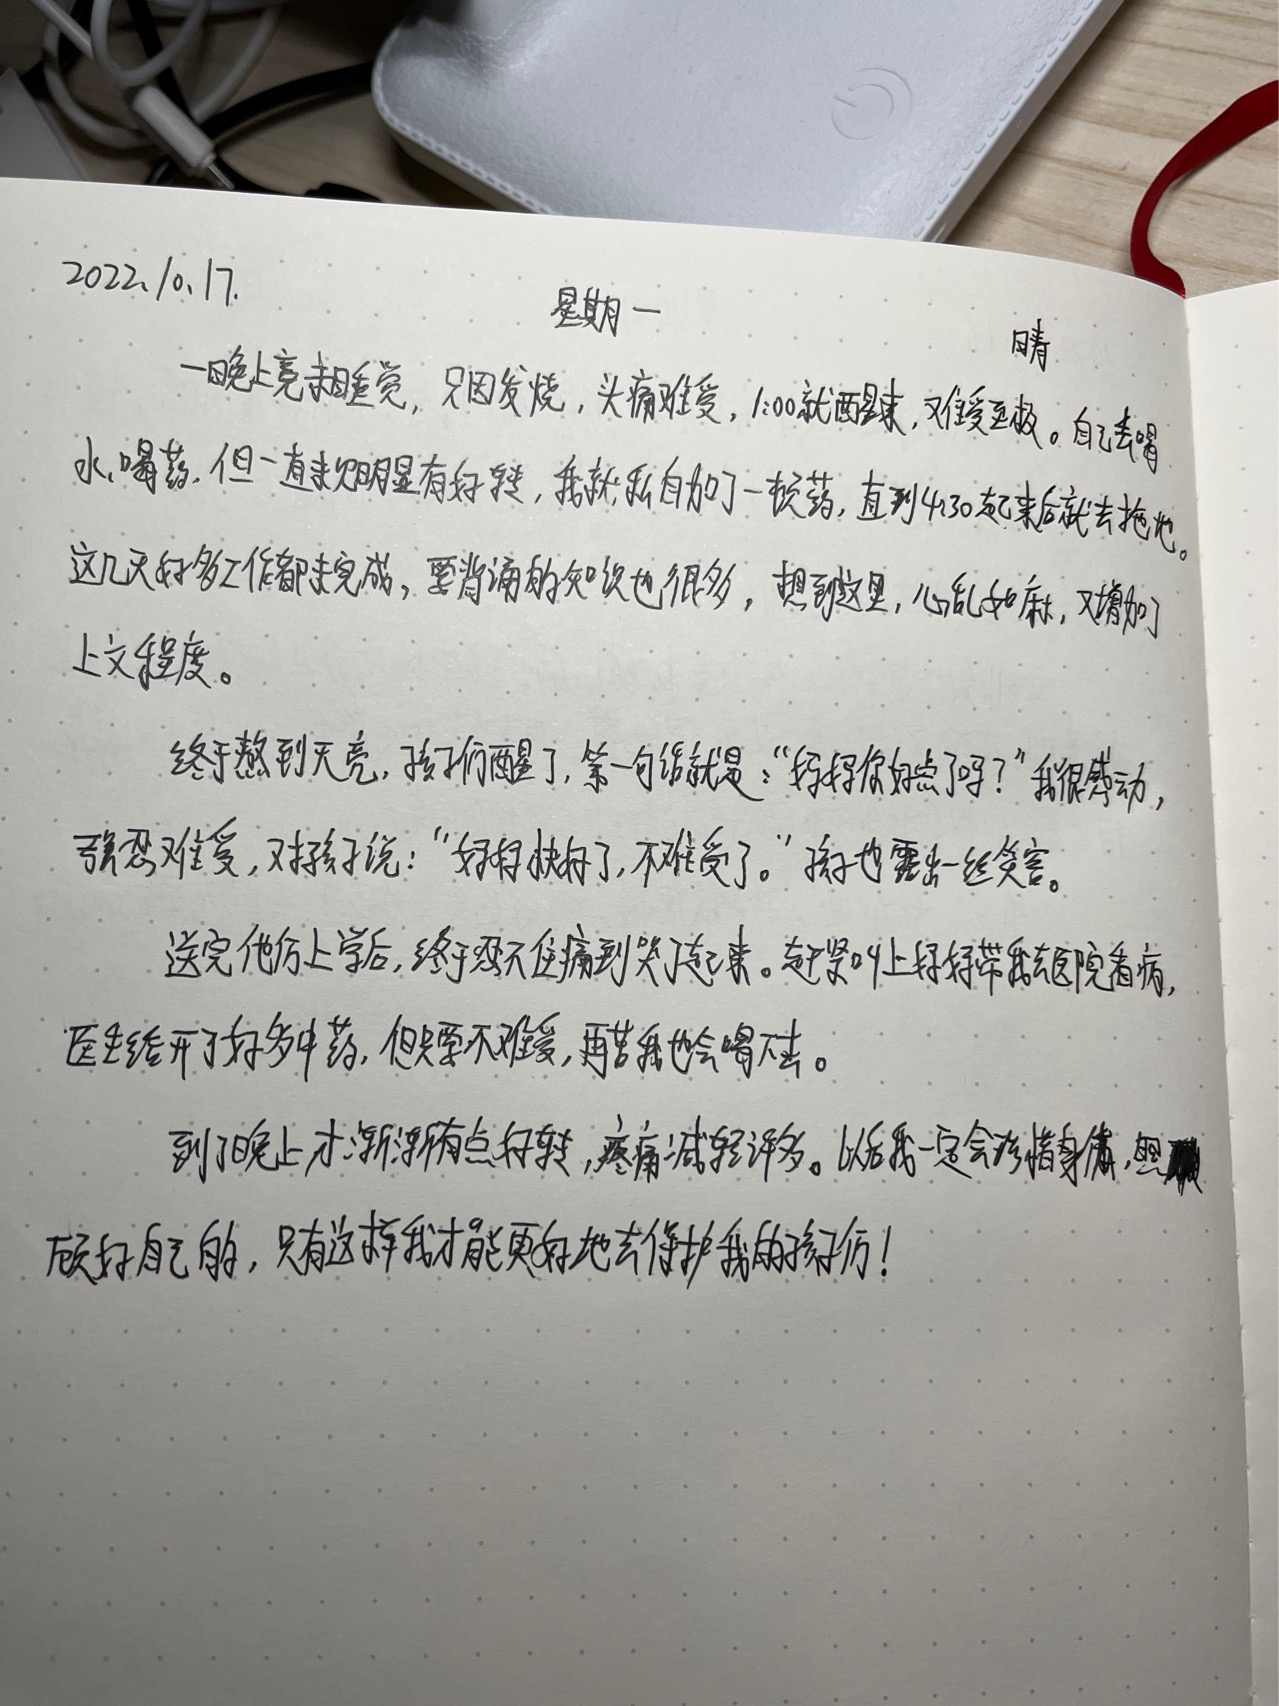 2022.10.17.
星期一
晴
一晚上竟未睡觉，只因发烧，头痛难受，1:00就醒来，难受至极。自己去喝
水、喝药，但一直未见明显有好转，我就私自加了一顿药，直到4:30起来后就去拖地。
这几天好多工作都未完成，要背诵的知识也很多，想到这里，心乱如麻，又增加了
上文程度。
终于熬到天亮，孩子们醒了，第一句话就是：“妈妈你好点了吗？”我很感动，
强忍难受，对孩子说：“妈妈快好了，不难受了。”孩子也露出一丝笑容。
送完他们上学后，终于忍不住痛到哭了起来。赶紧叫上妈妈带我去医院看病，
医生给开了好多中药，但只要不难受，再苦我也会喝下去。
到了晚上才渐渐有点好转，疼痛减轻许多。以后我一定会珍惜身体，照
顾好自己的，只有这样我才能更好地去保护我的孩子们！